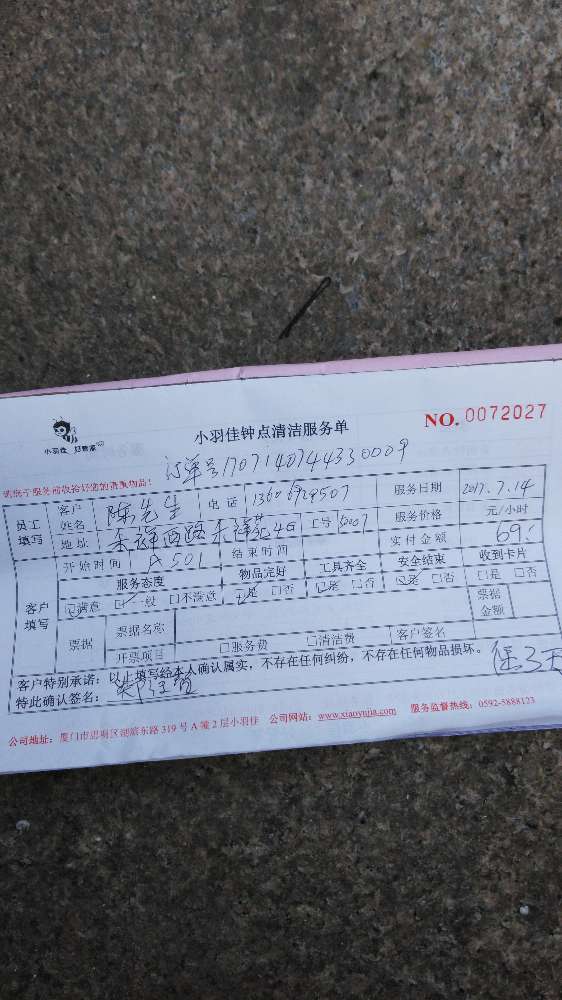 小羽佳 好管家
小羽佳钟点清洁服务单
NO. 0072027
订单号1707140744330009
请您于服务前收拾好您的贵重物品!
员工填写 客户姓名 陈先生 电话 服务日期 2017.7.14
地址 禾祥西路禾祥苑4G 工号 服务价格 元/小时
开始时间 A501 结束时间 实付金额 69
客户填写 服务态度 物品完好 工具齐全 安全结束 收到卡片
☑满意 □一般 □不满意 ☑是 □否 ☑是 □否 ☑是 □否 □是 □否
票据 票据名称 票据金额
开票项目 □服务费 □清洁费 客户签名
客户特别承诺:以上填写经本人确认属实,不存在任何纠纷,不存在任何物品损坏。
特此确认签名:
公司地址:厦门市思明区湖滨东路319号A幢2层小羽佳 公司网站:www.xiaoyujia.com 服务监督热线:0592-5888123